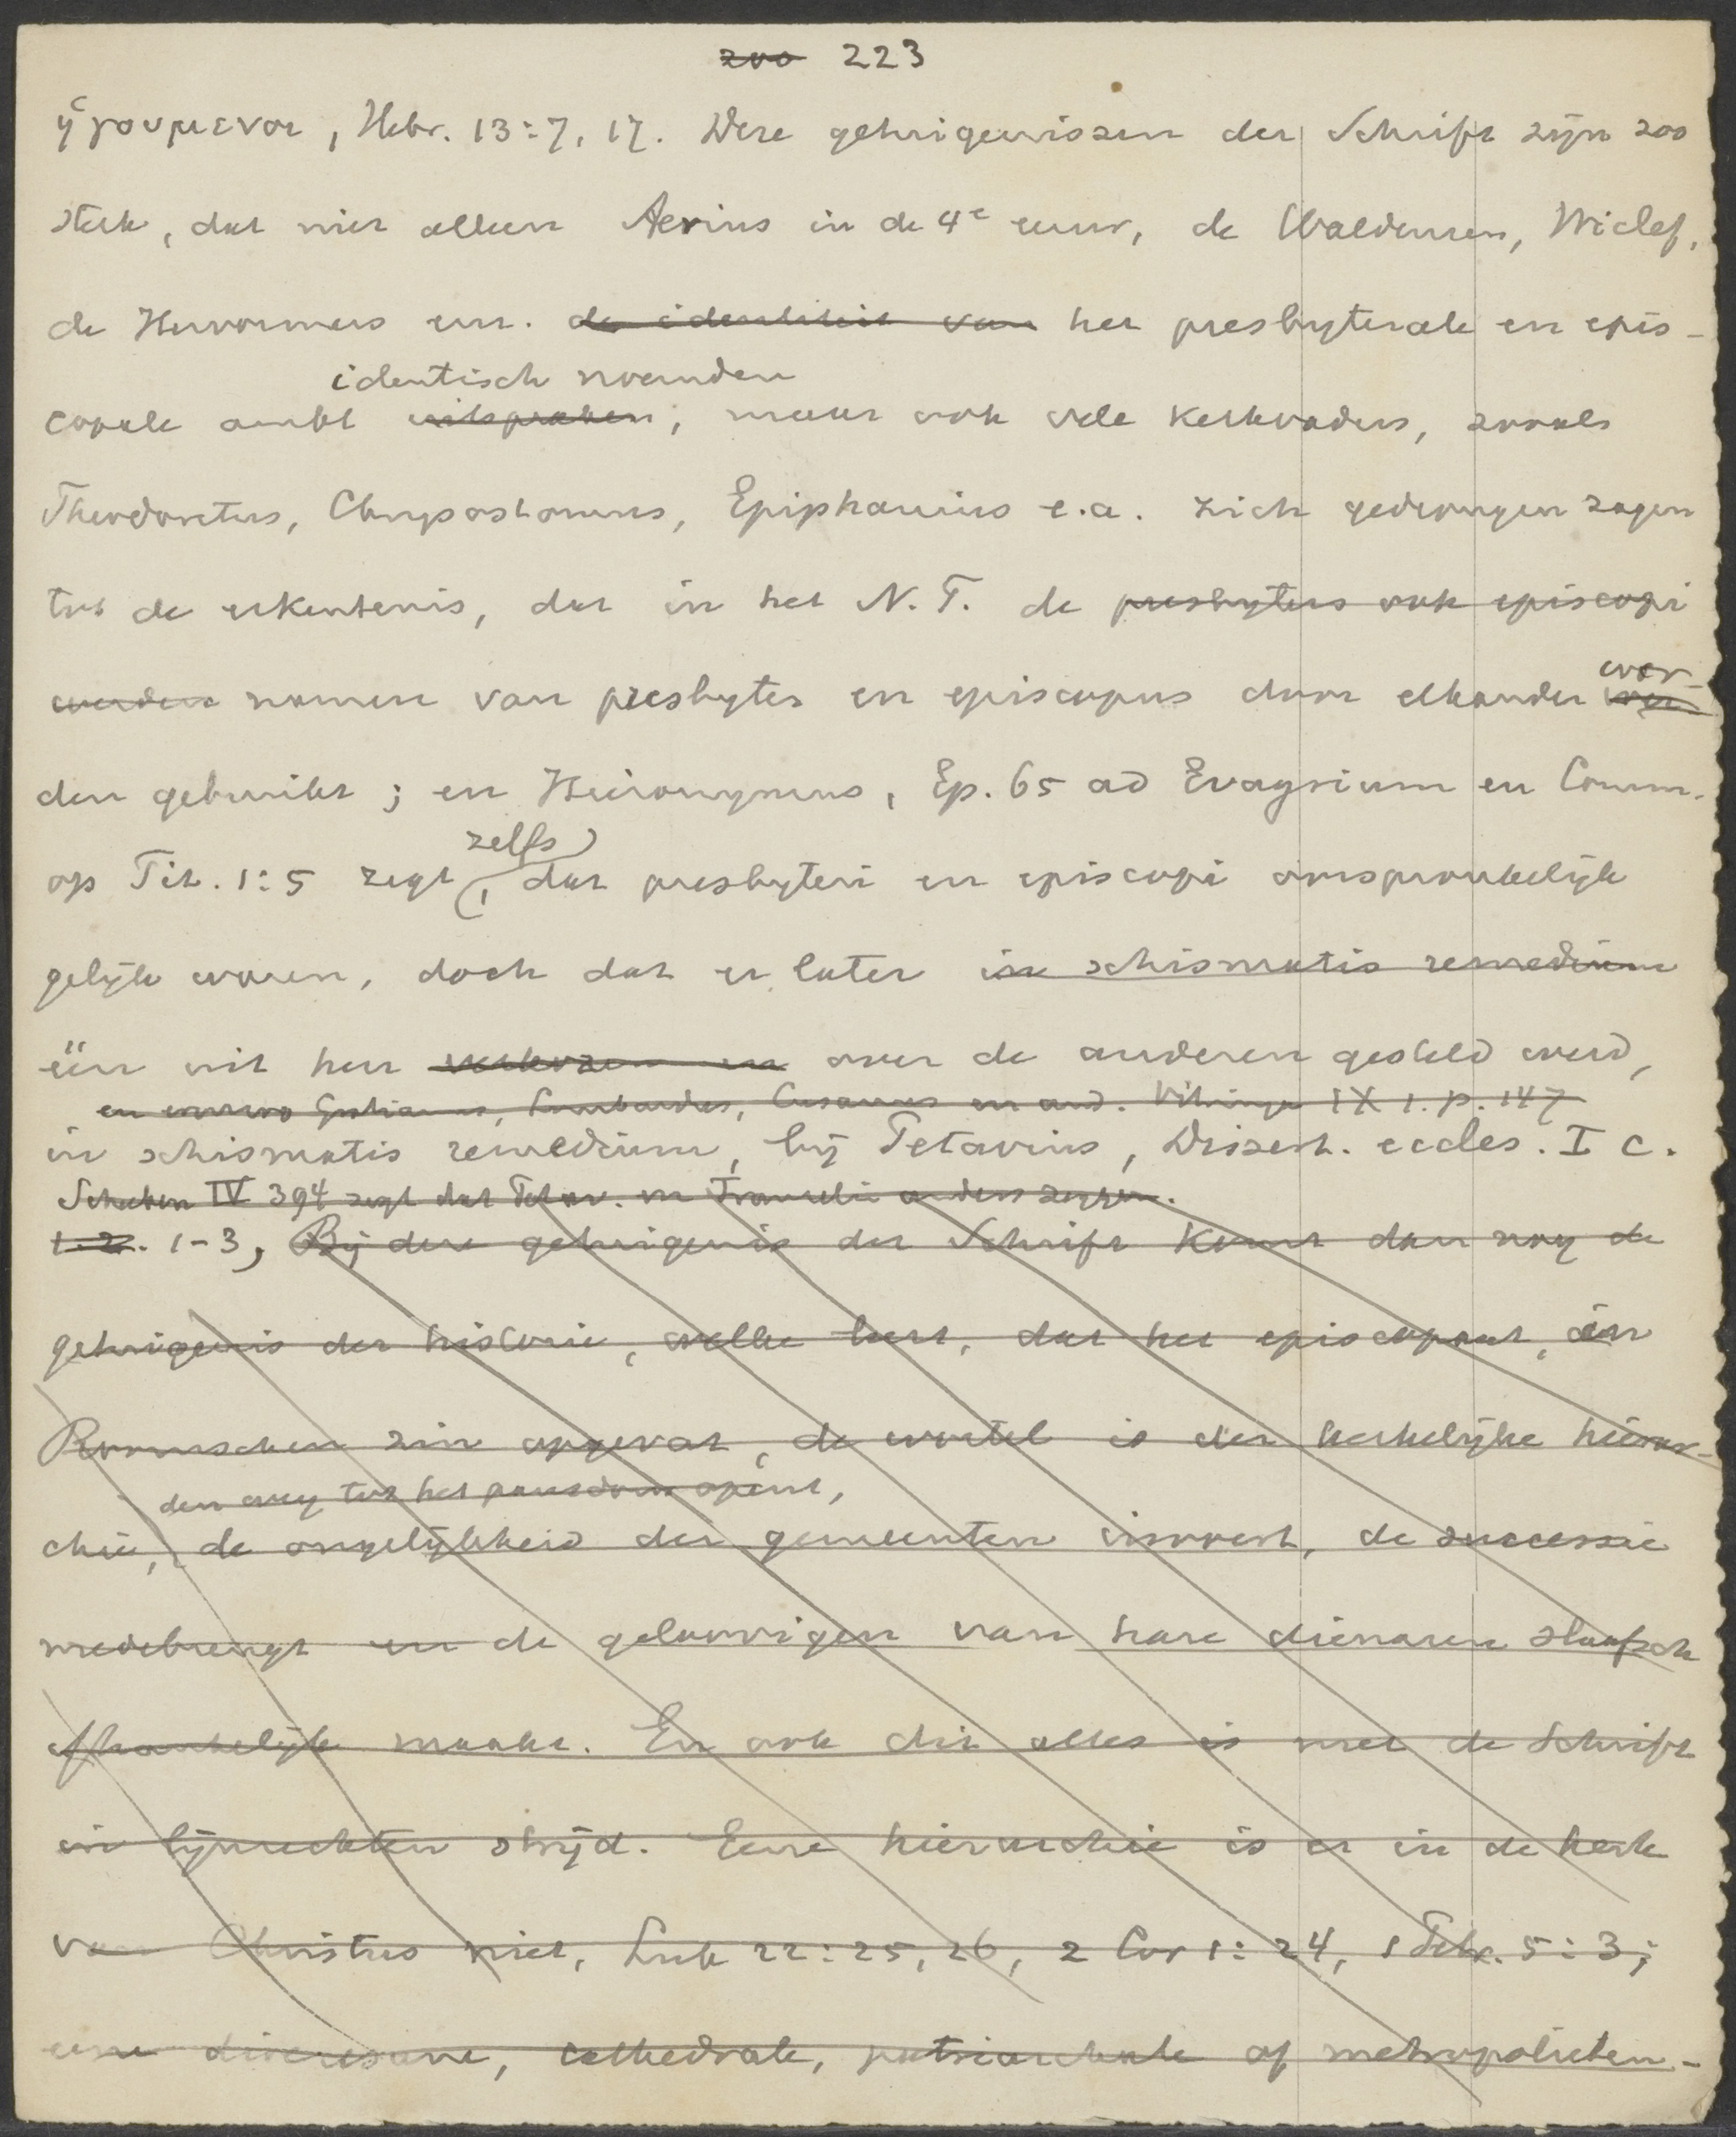 zoo 223
ἡγουμενοι, Hebr. 13:7, 17. Deze getuigenissen der Schrift zijn zoo
sterk, dat niet alleen Aerius in de 4e eeuw, de Waldenzen, Wiclef,
de Hervormers enz. de identiteit van het presbyterale en epis-
identisch noemden
copale ambt uitspraken; maar ook vele kerkvaders, zooals
Theodoretus, Chrysostomus, Epiphanius e.a. zich gedrongen zagen
tot de erkentenis, dat in het N.T. de presbyters ook episcopi
wor-
werden namen van presbyter en episcopus door elkander
den gebruikt; en Hieronymus, Ep. 65 ad Evagrium en Comm.
zelfs
op Tit. 1:5 zegt, dat presbyteri en episcopi oorspronkelijk
gelijk waren, doch dat er later in schismatis remedium
één uit hen verkozen en over de anderen gesteld werd,
en evenzoo Gratianus, Lombardus, Cusanus en and. Vitringa IX 1. p. 147
in schismatis remedium, bij Petavius, Dissert. eccles. I c.
Scheeben IV 394 zegt dat Petav. en Franzelin anders zeggen.
1.2. 1-3, Bij deze getuigenis der Schrift komt dan nog de
getuigenis der historie, welke leert, dat het episcopaat, in
Roomschen zin opgevat, de wortel is der kerkelijke hierar-
den weg tot het pausdom opent,
chie, de ongelijkheid der gemeenten invoert, de successie
medebrengt en de geloovigen van hare dienaren slaafsch
afhankelijk maakt. En ook dit alles is met de Schrift
in lijnrechten strijd. Eene hierarchie is er in de kerk
van Christus niet, Luk 22:25, 26, 2 Cor 1:24, 1 Petr. 5:3;
eene diocesane, cathedrale, patriarchale of metropolitan-